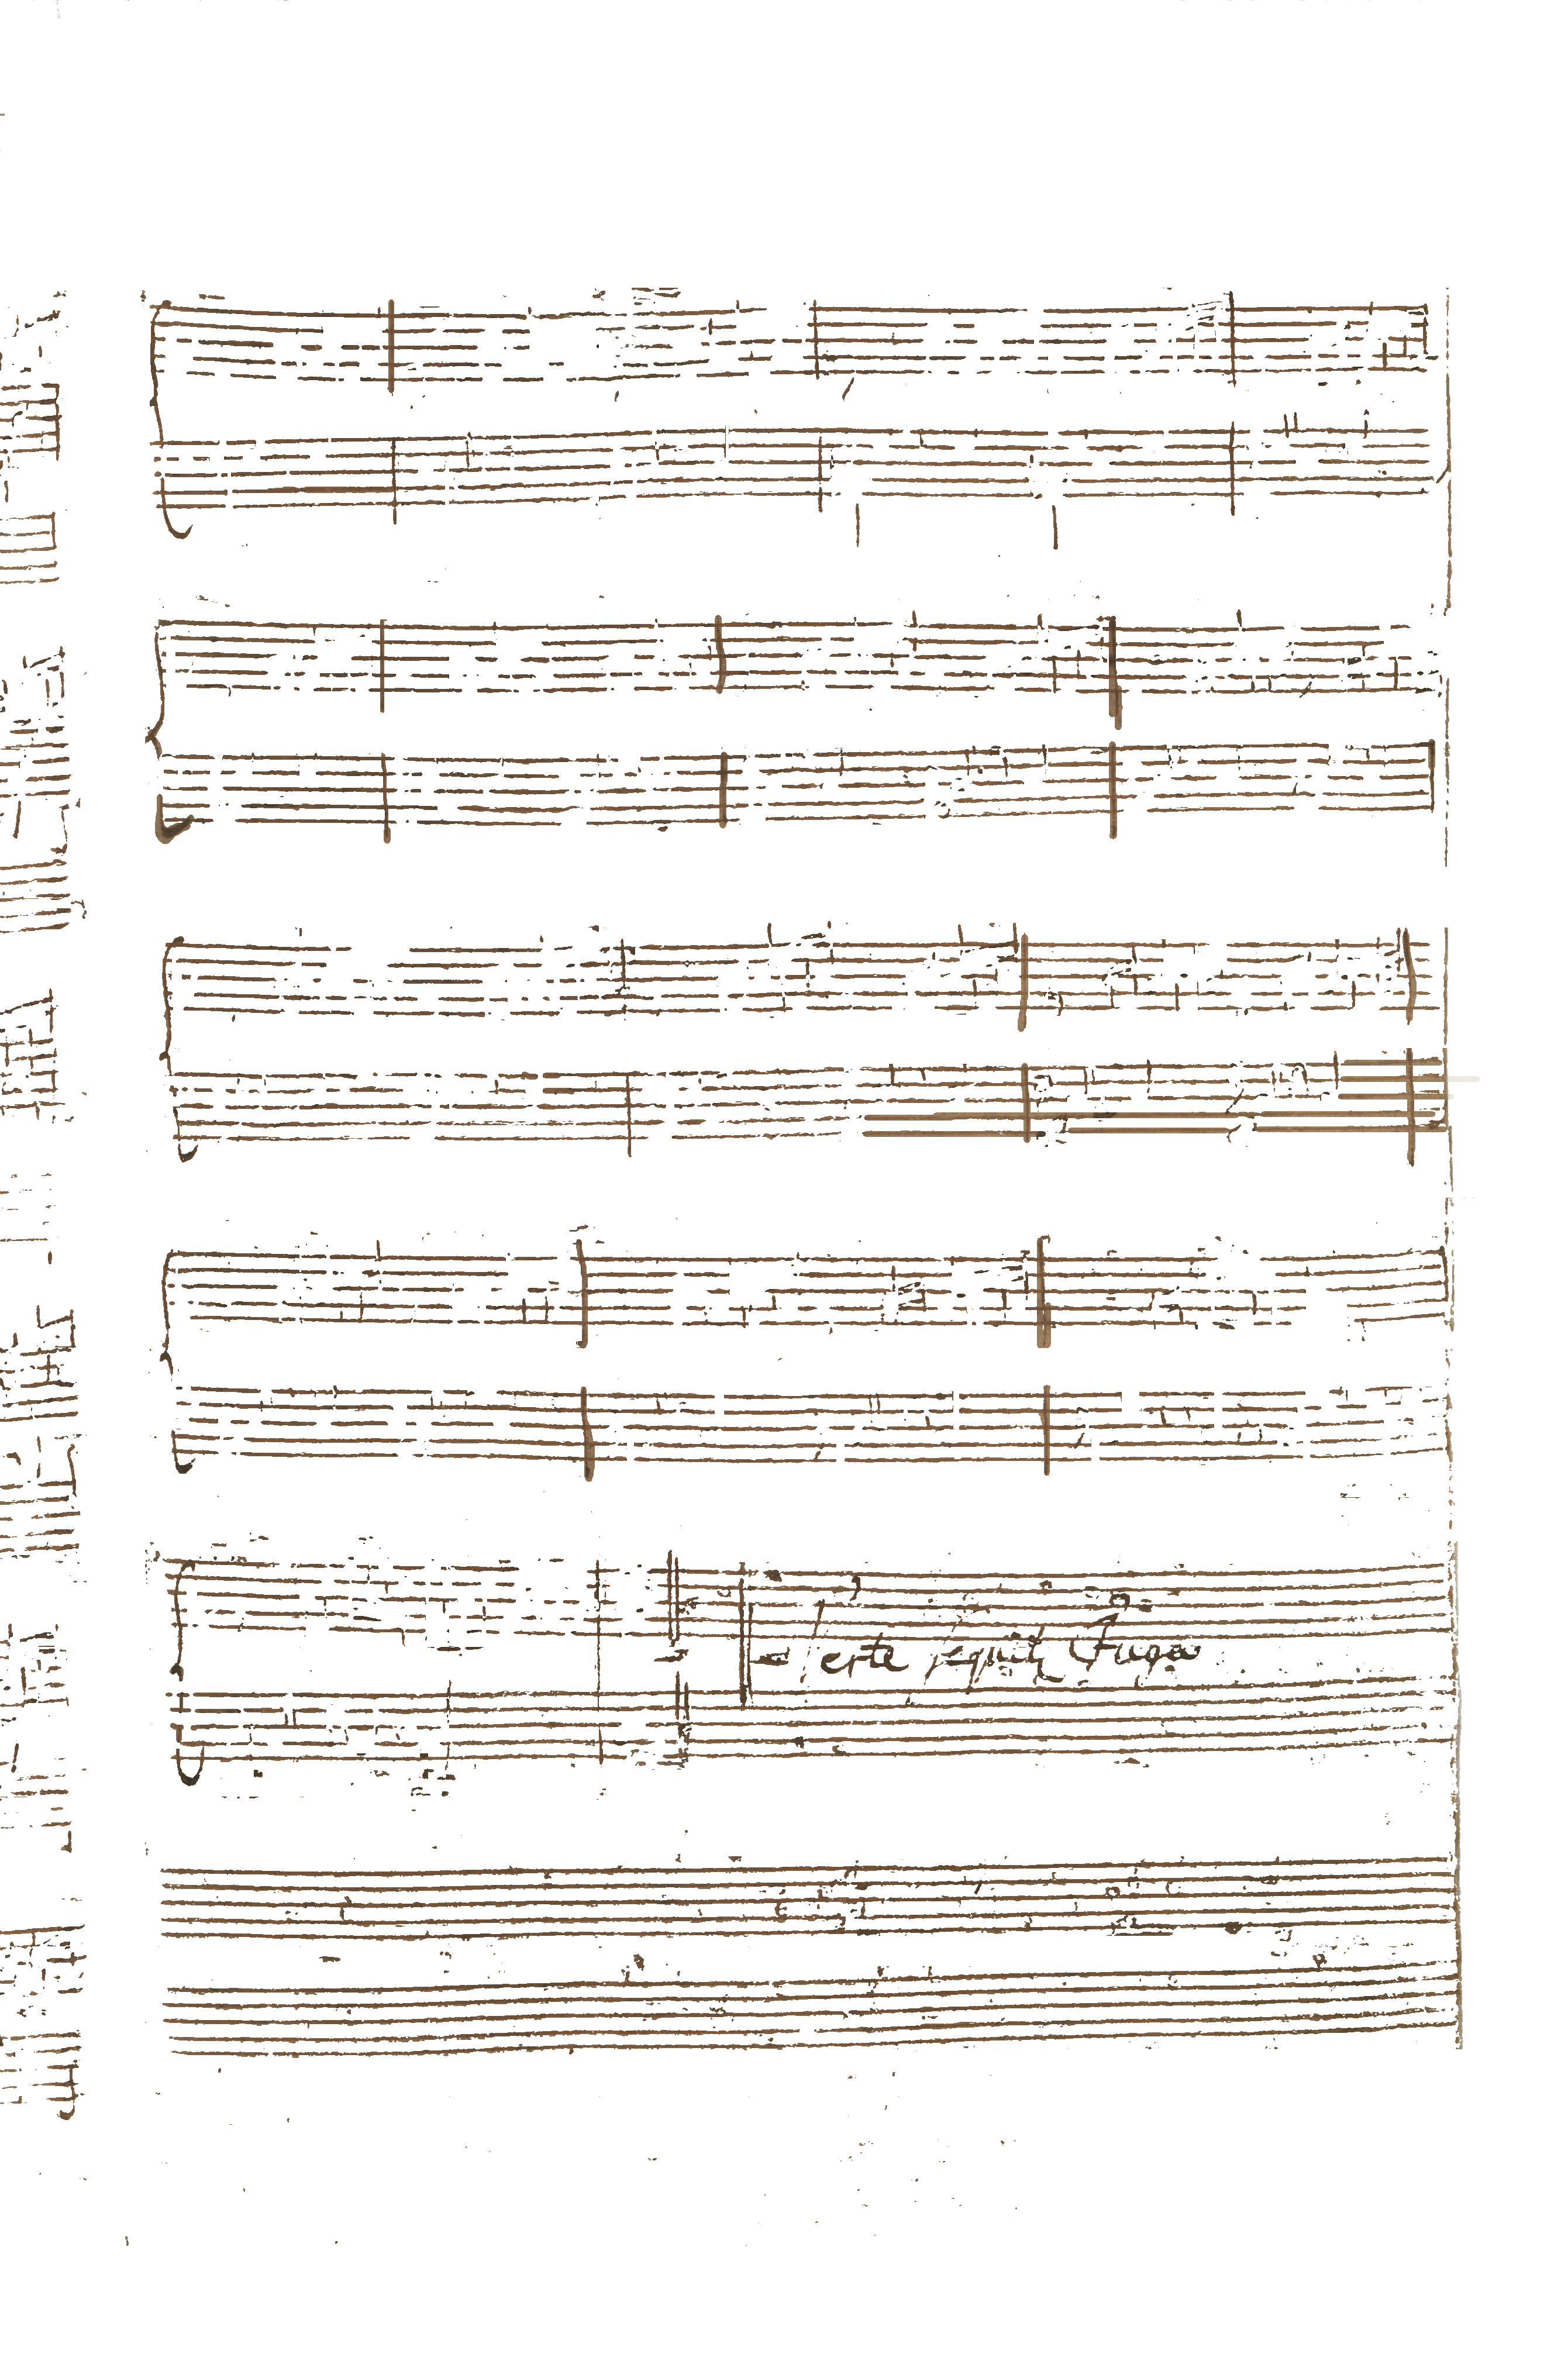 Verte sequitr Fuga